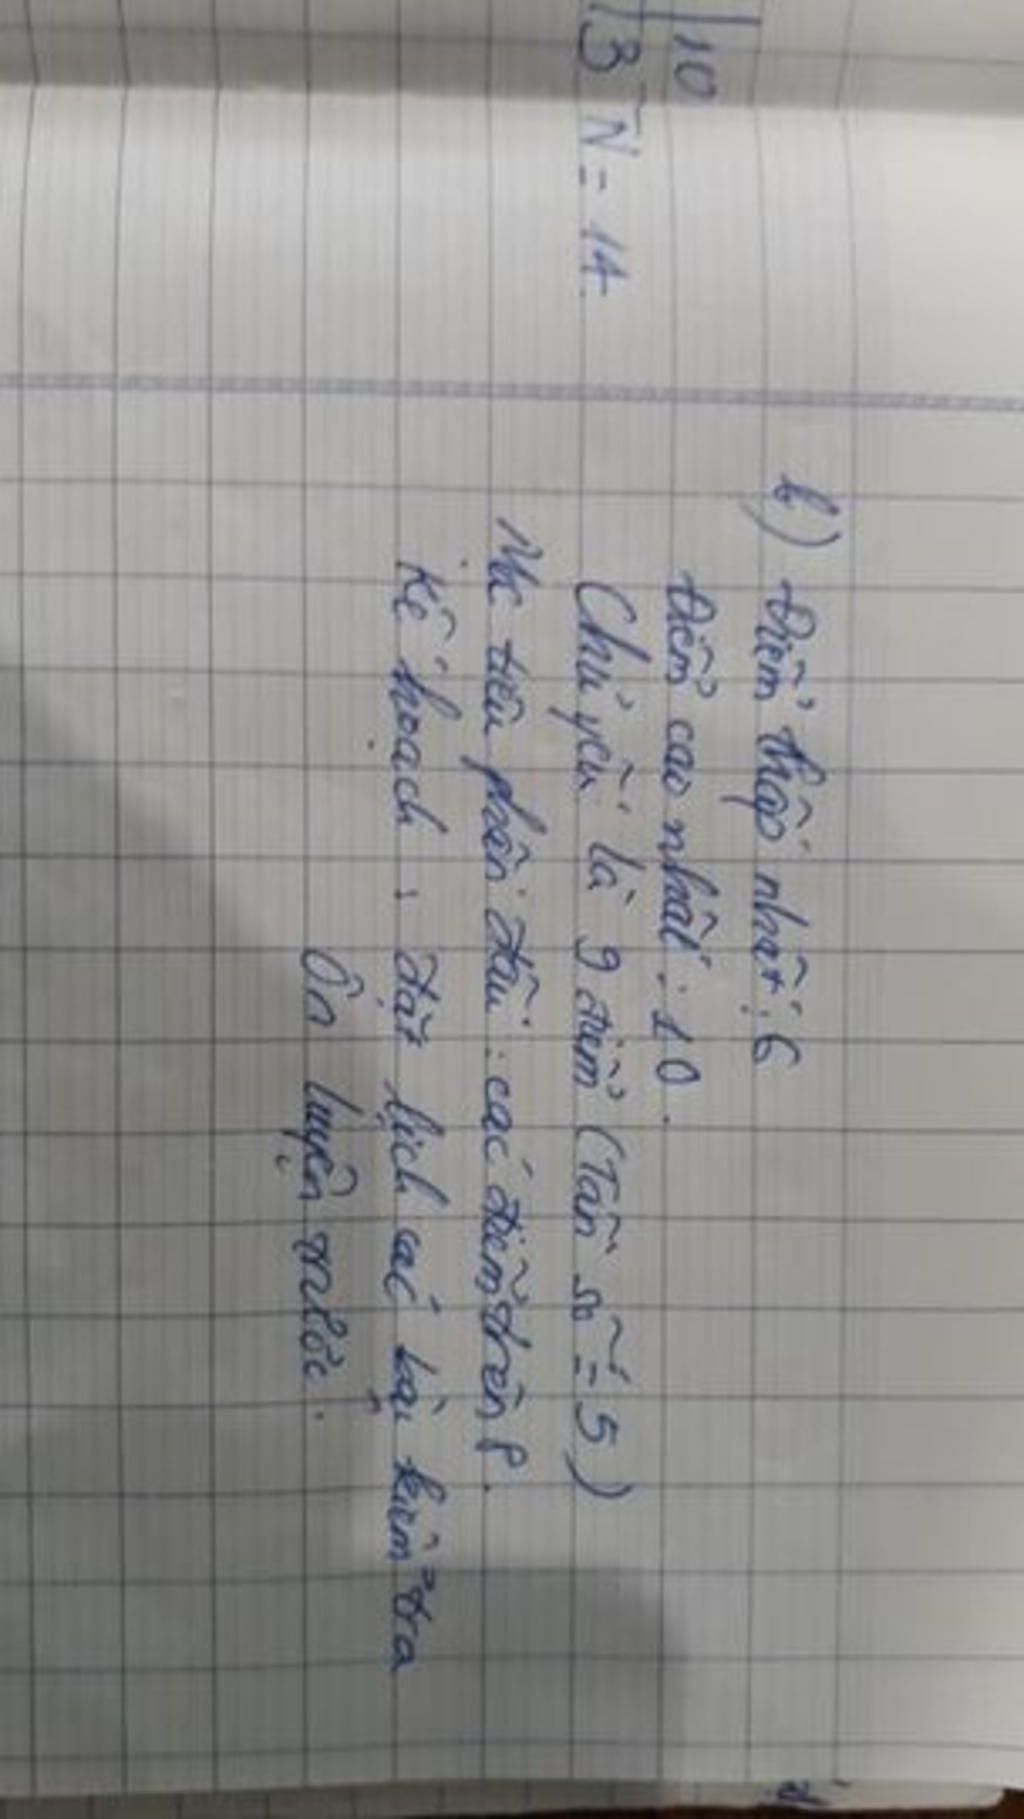 10
3 N = 14
b) Điểm thấp nhất: 6
Điểm cao nhất: 10.
Chủ yếu là 9 điểm (Tần số = 5)
Mục tiêu phấn đấu: các điểm trên 8.
Kế hoạch: đặt lịch các bài kiểm tra
Ôn luyện trước.